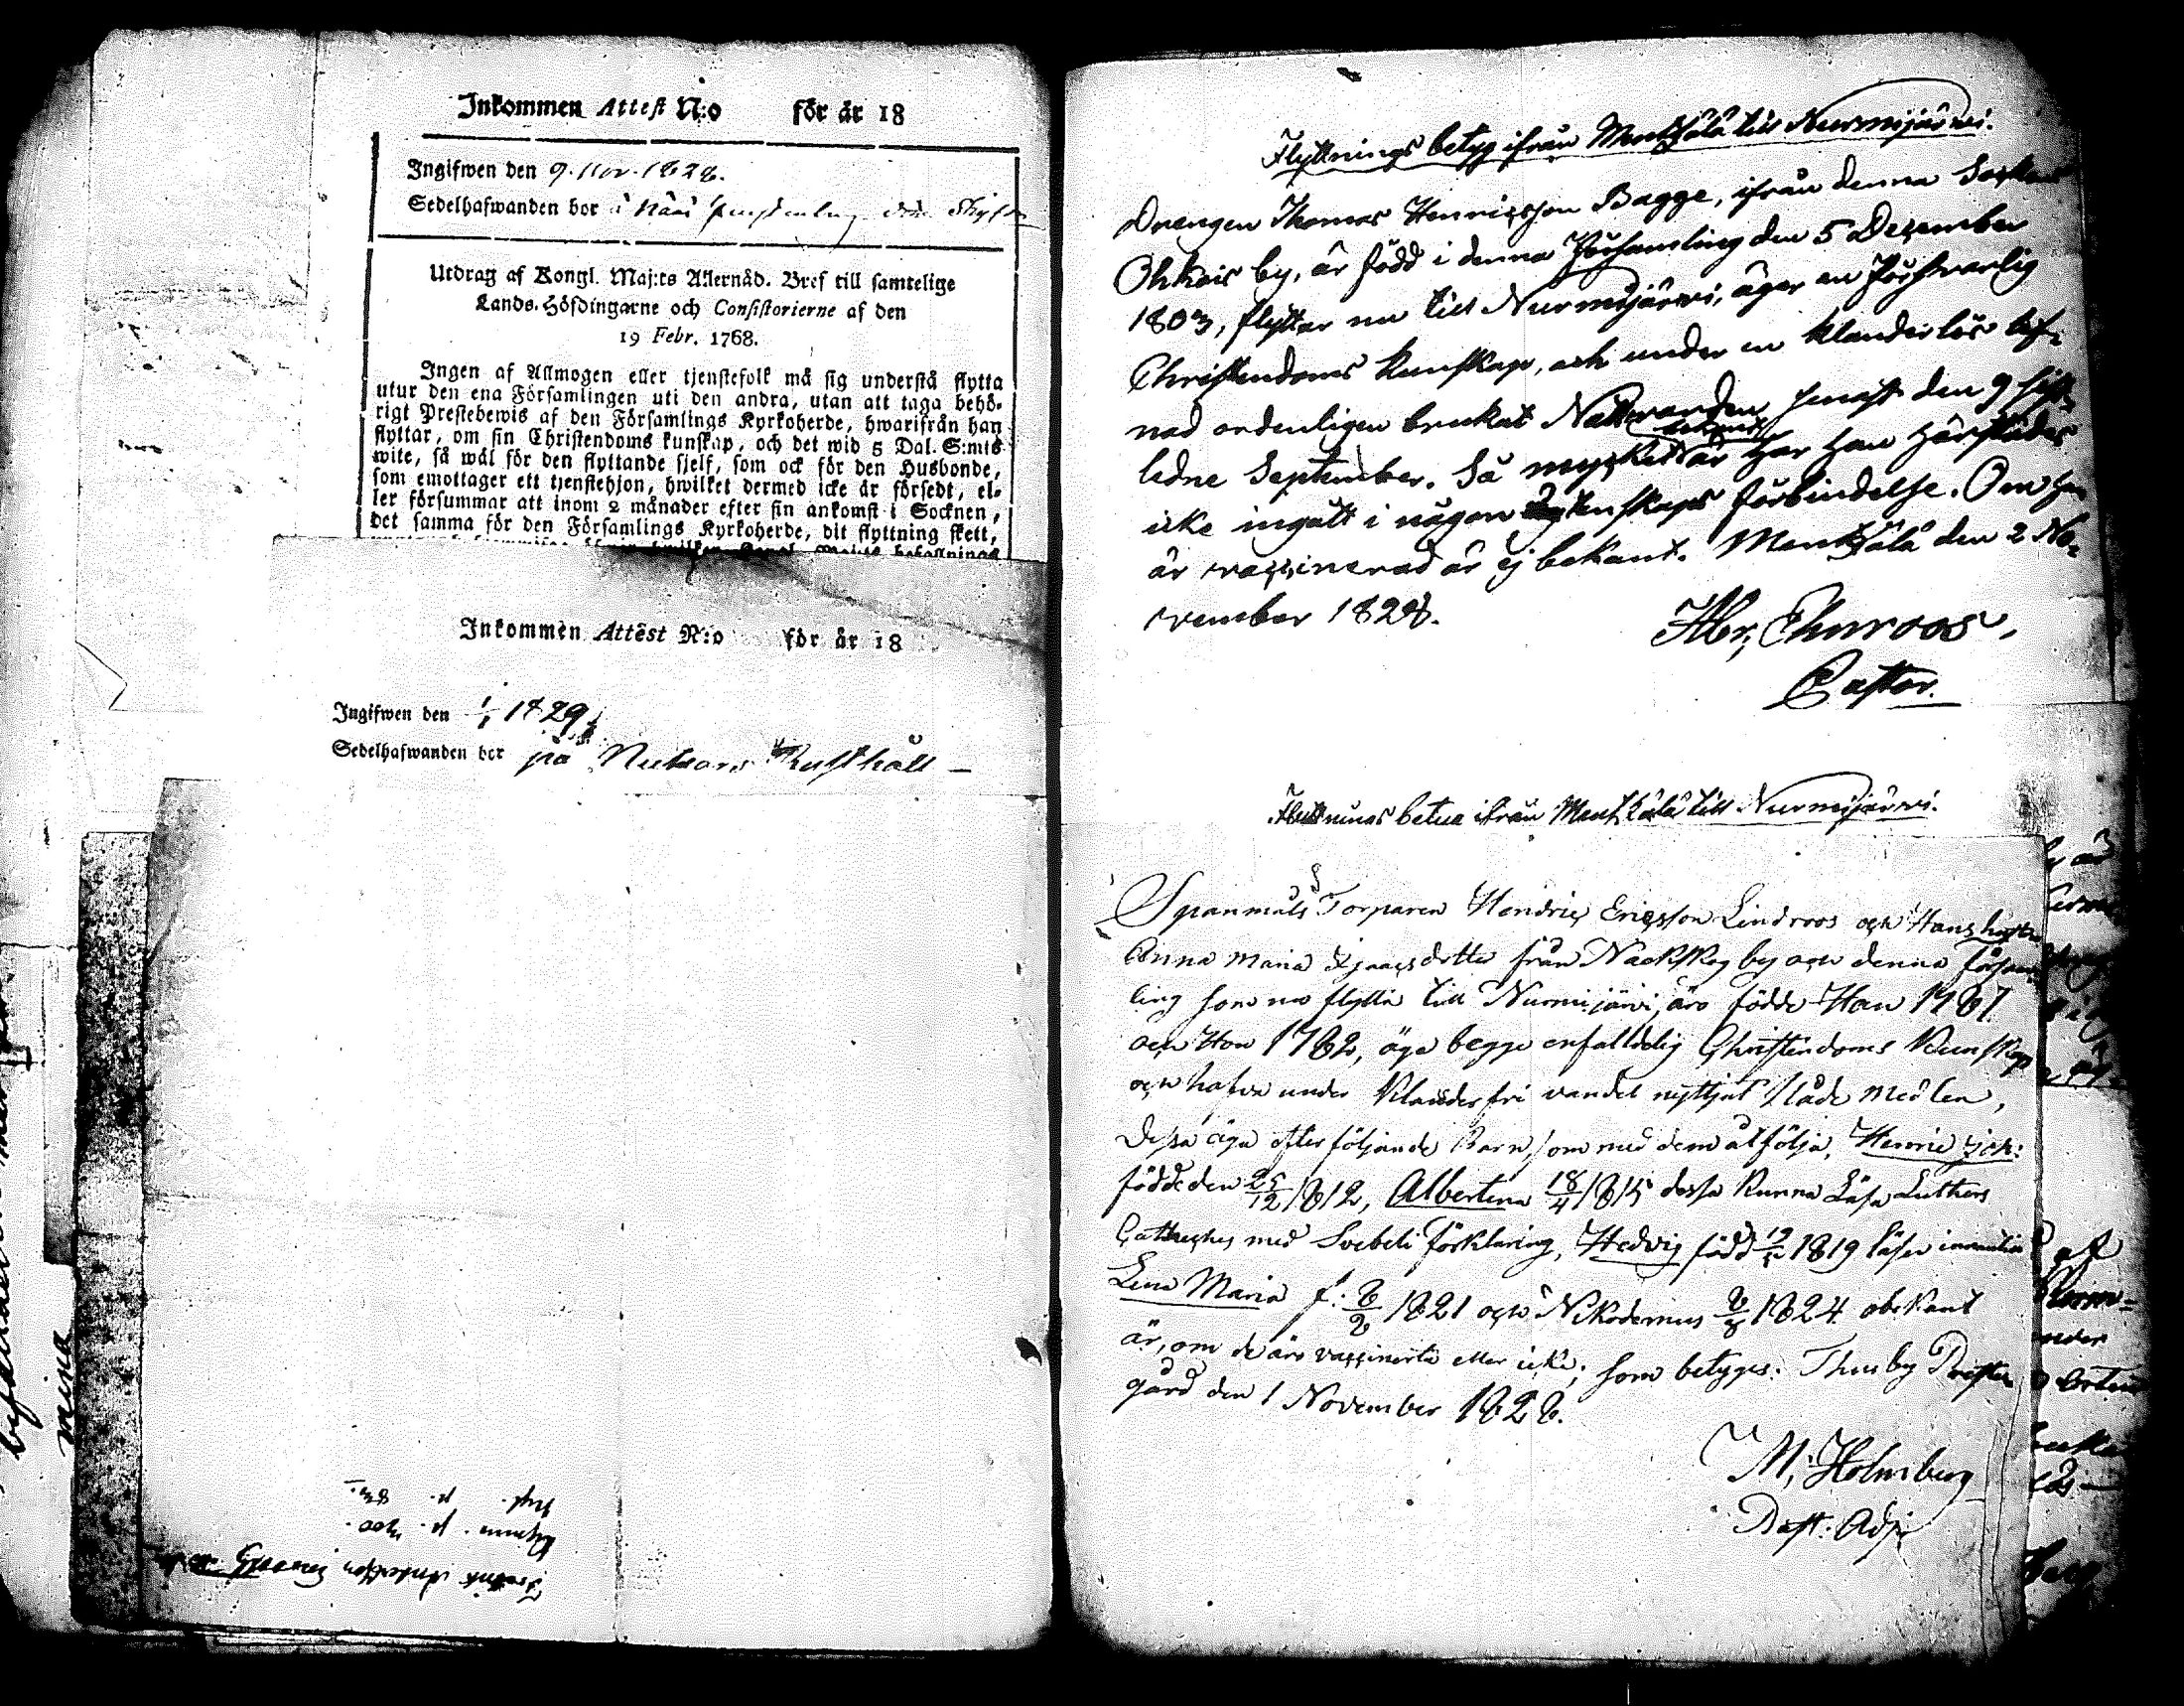 Inkommen Attest N:o för år 18
Ingifwen den 9. Nov. 1828.
Sedelhafwanden bor i
Utdrag af Kongl. Maj:ts Allernåd. Bref till samtelige
Lands-Höfdingarne och Consistorierne af den
19 Febr. 1768.
Ingen af Allmogen eller tjenstefolk må sig understå flytta
utur den ena Församlingen uti den andra, utan att taga behö-
rigt Prestebewis af den Församlings Kyrkoherde, hwarifrån han
flyttar, om sin Christendoms kunskap, och det wid 5 Dal. S:mts
wite, så wäl för den flyttande sjelf, som ock för den Husbonde,
som emottager ett tjenstehjon, hwilket dermed icke är försedt, el-
ler försummar att inom 2 månader efter sin ankomst i Socknen,
det samma för den Församlings Kyrkoherde, dit flyttning skett,
Inkommen Attest N:o för år 18
Ingifwen den 1/1 1829
Sedelhafwanden bor på Rusthåll
mina
Flyttnings betyg ifrån Mentzälä till Nurmijärvi.
Drengen Thomas Henricsson Bagge, ifrån denna Sockens
Ohkois by, är född i denna Församling den 5 December
1803, flyttar nu till Nurmijärvi, äger en försvarlig
Christendoms kunskap, och under en klanderlös lef-
nad ordenligen brukat Nattvarden senast den 9 sist-
ledne September. Så mycket bekant är har han härstädes
icke ingått i någon Egtenskaps förbindelse. Om han
är vaccinerad är ej bekant. Mentzälä den 2 No-
vember 1828.
Abr. Thuroos,
Pastor.
Flyttnings betyg ifrån Mentzälä till Nurmijärvi.
Spanmåls Torparen Hendric Ericsson Lindroos och Hans hustru
Anna Maria Isaacsdotter från Nackskog by och denna försam-
ling som nu flytta till Nurmijärvi, äro födde Han 1781
och Hon 1782, äga begge enfalldelig Christendoms Kunskap
och hafva under Klanderfri vandel nyttjat Nådemedlen,
Dessa äga efterföljande Barn, som med dem åtfölja, Henric Joh:
födde den 25/12 1812, Albertina 18/4 1815 dessa kunna Läsa Luthers
Catheches med Svebeli förklaring, Hedvig född 1819 läser innantill
Lena Maria f: 1821 och Nikodemus 1824 obekant
är, om de äro vaccinerte eller icke; som betyges. Thusby Preste
gård den 1 November 1828.
M. Holmberg
Past: Adj: